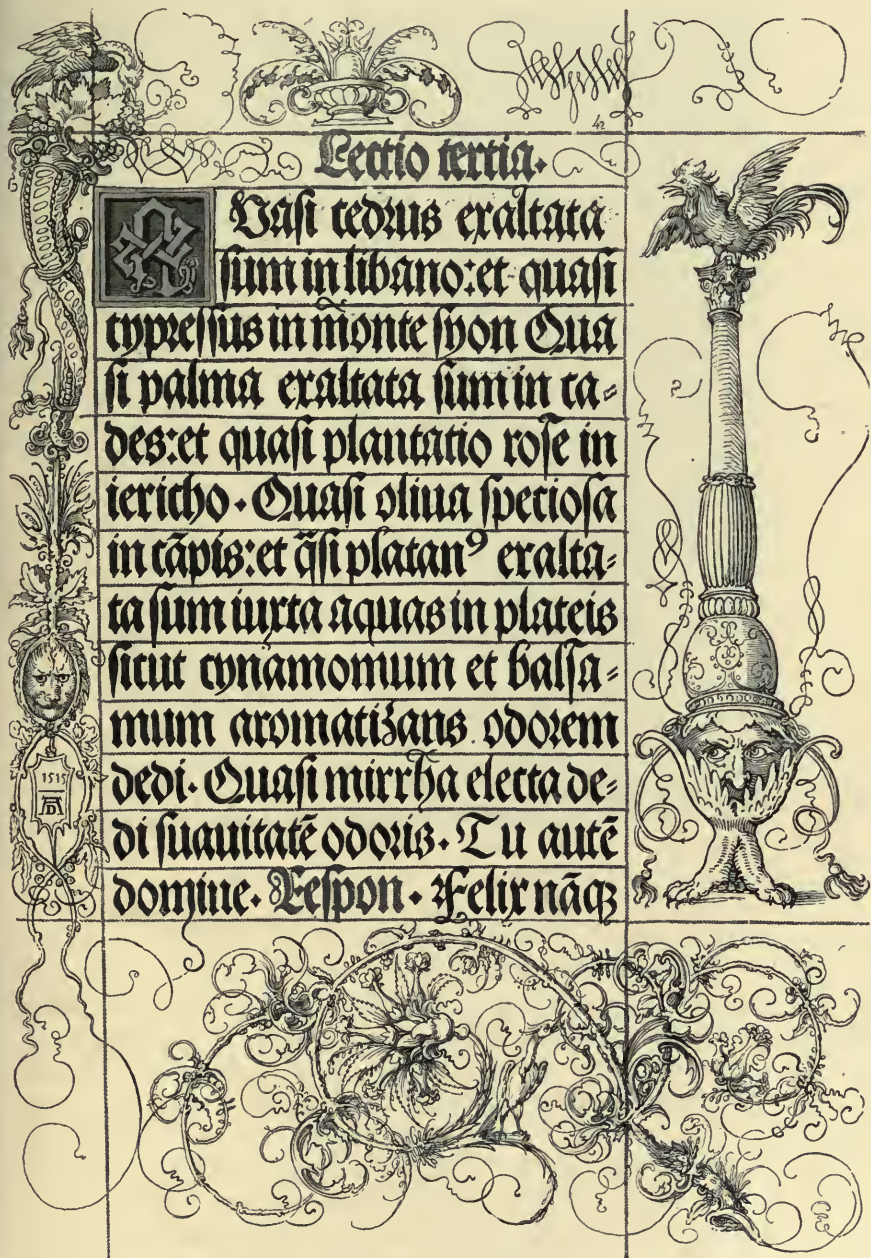 42
Lectio tertia.
QVasi cedrus exaltata
sum in libano: et quasi
cypressus in monte syon Qua
si palma exaltata sum in ca-
des: et quasi plantatio rose in
iericho. Quasi oliua speciosa
in cãpis: et q̃si platanꝰ exalta-
ta sum iuxta aquas in plateis
sicut cynamomum et balsa-
mum aromatizans odorem
dedi. Quasi mirrha electa de-
di suauitatẽ odoris. Tu autẽ
domine. Respon. Felix nãqꝫ
1515
AD